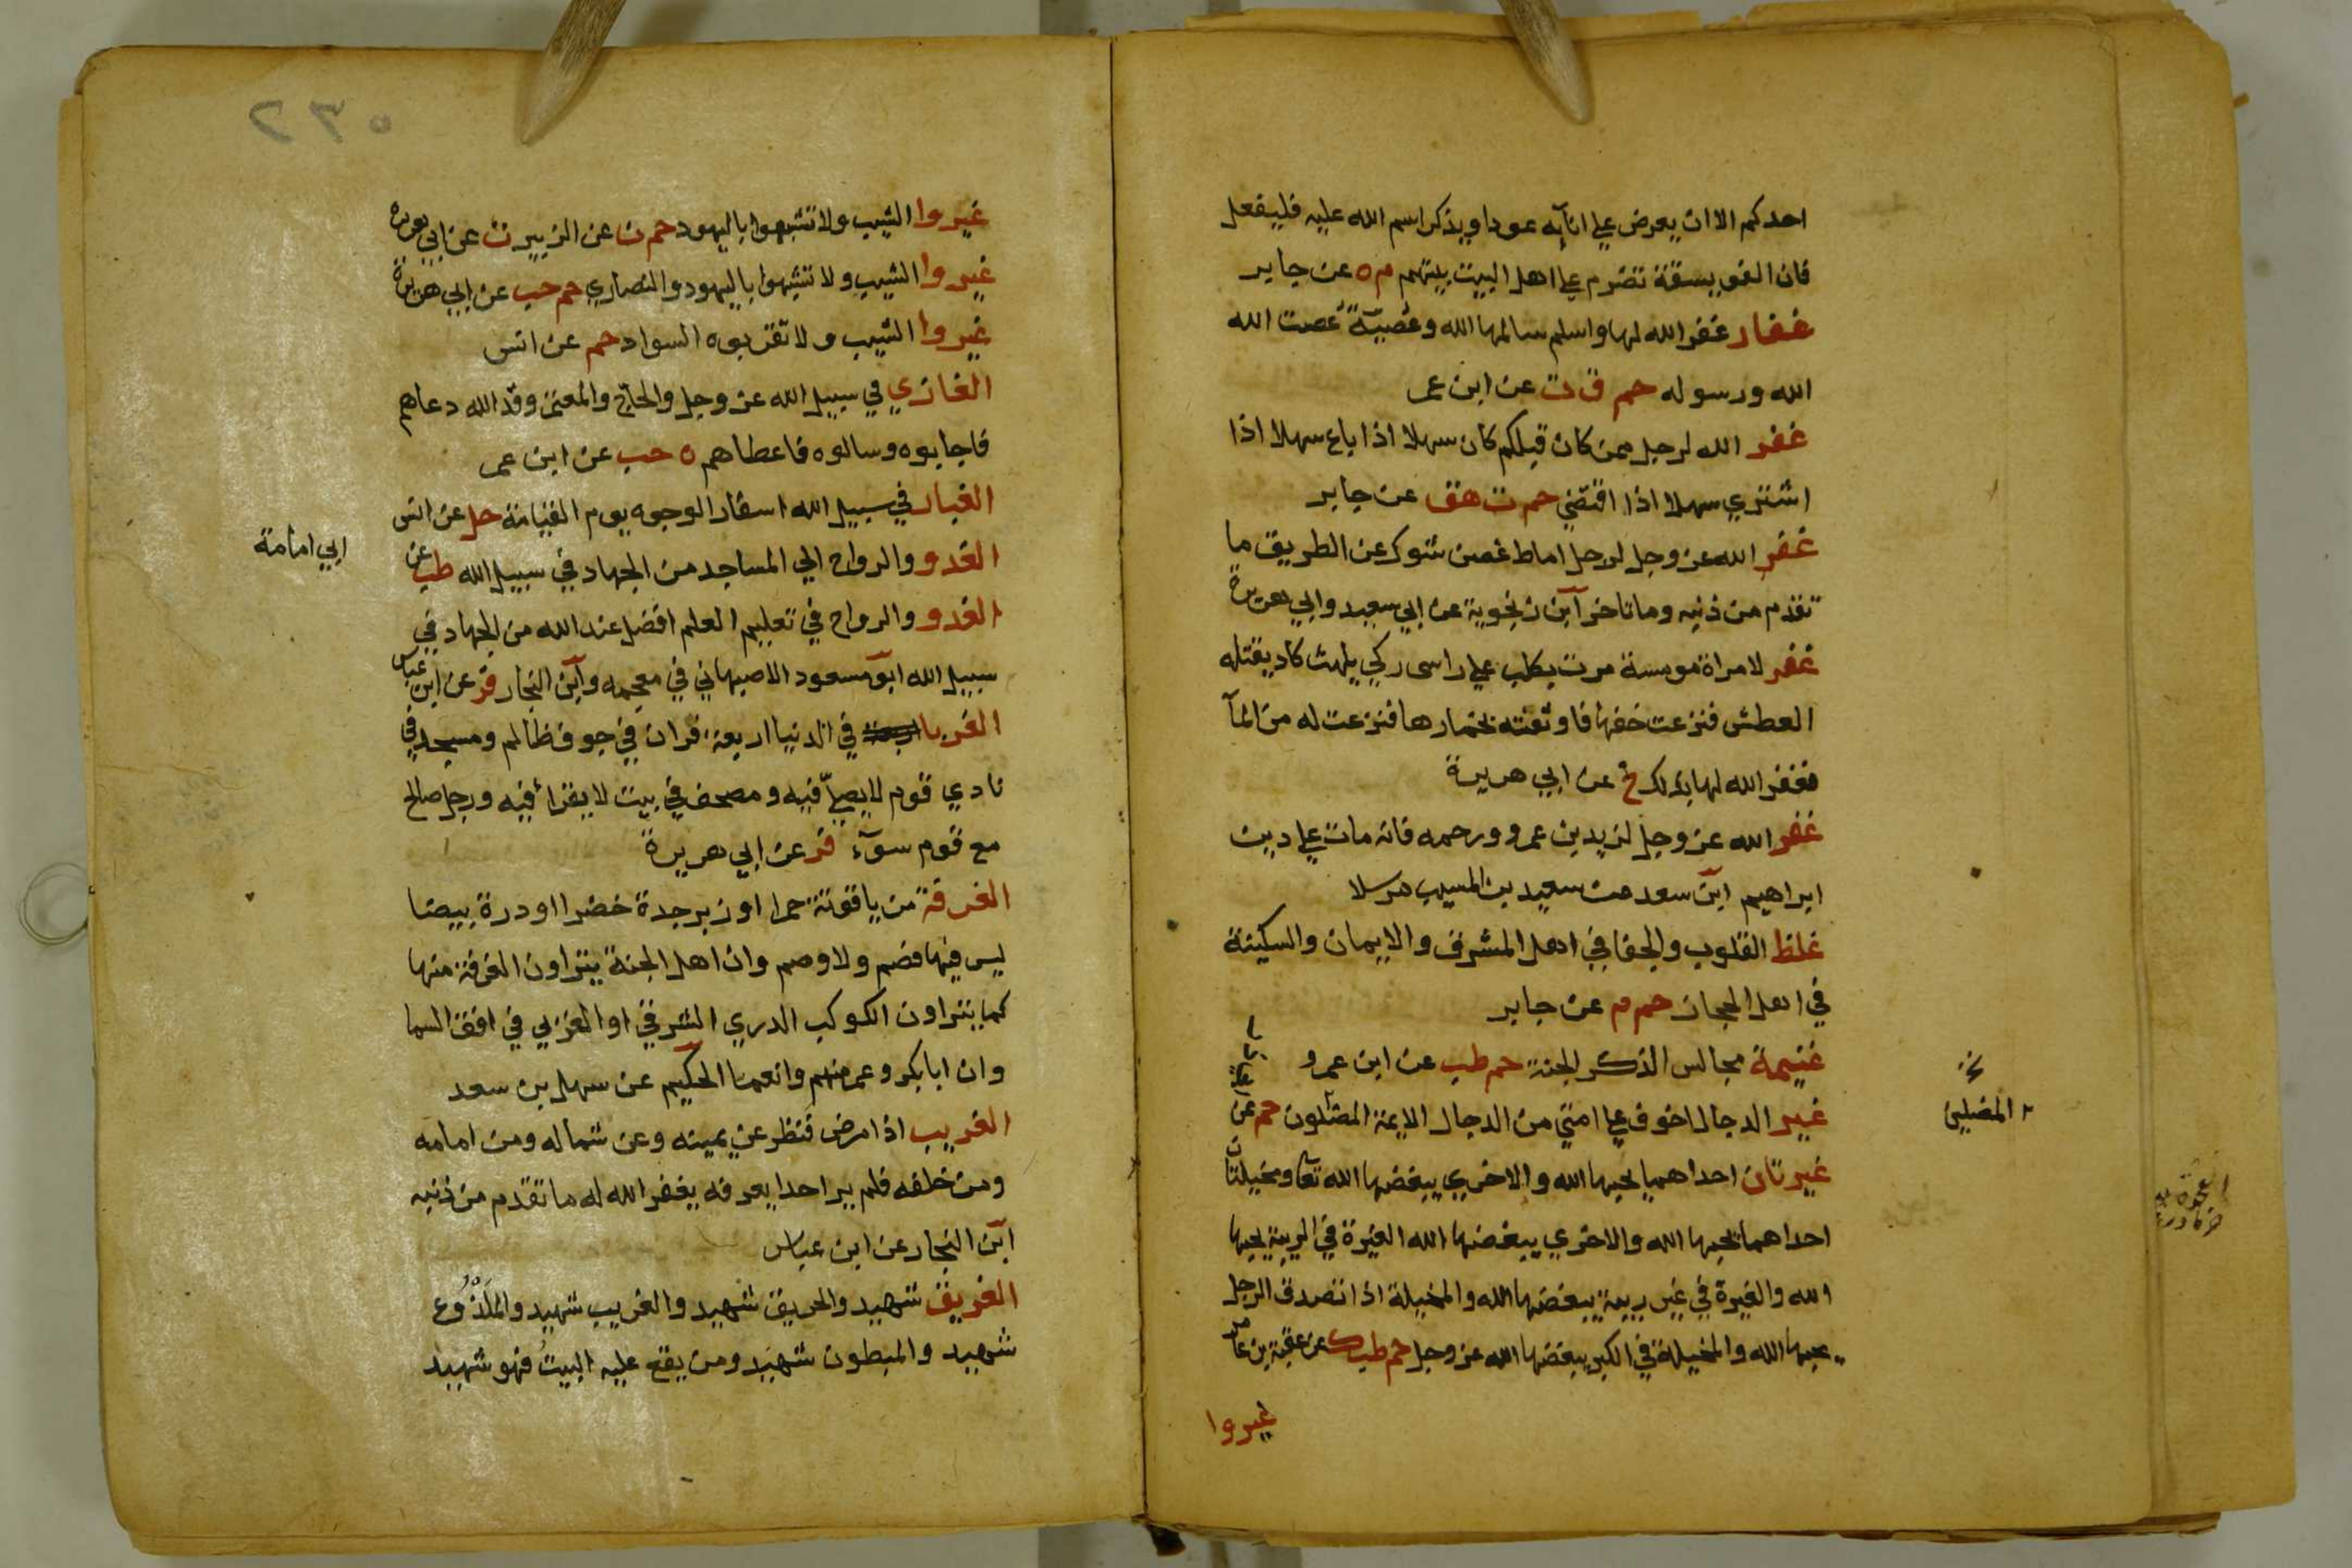 احدكم الا ان يعرض علي انآيه عودا ويذكر اسم الله عليه فليفعل
فان الفويسقة تضرم علي اهل البيت بيتهم م ه عن جابر
غفار غفر الله لها واسلم سالمها الله وعُصيّةُ عصت الله
الله ورسوله حم ق ت عن ابن عمر
غفر الله لرجل ممن كان قبلكم كان سهلا اذا باع سهلا اذا
اشتري سهلا اذا اقتضي حم ت هق عن جابر
غفر الله عز وجل لرجل اماط غصن شوك عن الطريق ما
تقدم من ذنبه وما تاخر ابن زنجوية عن ابي سعيد وابي هريرة
غفر لامراة مومسة مرت بكلب علي راس ركي يلهث كاد يقتله
العطش فنزعت خفها فاوثقته بخمارها فنزعت له من المآ
فغفر الله لها بذلك خ عن ابي هريرة
غفر الله عز وجل لزيد بن عمرو ورحمه فانه مات علي دين
ابراهيم ابن سعد عن سعيد بن المسيب مرسلا
غلظ القلوب والجفا في اهل المشرق والايمان والسكينة
في اهل الحجاز حم م عن جابر
غنيمة مجالس الذكر الجنة حم طب عن ابن عمرو
غير الدجال اخوف علي امتي من الدجال الايمة المضلون حم عن
المضلين
غيرتان احداهما يحبها الله والاخري يبغضها الله تعا ومخيلتان
احداهما يحبها الله والاخري يبغضها الله الغيرة في الريبة يحبها
الله والغيرة في غير ريبة يبغضها الله والمخيلة اذا تصدق الرجل
يحبها الله والمخيلة في الكبر يبغضها الله عز وجل حم طب ك عن عقبة بن عامر
غيروا
٥٣٢
غيروا الشيب ولا تشبهوا باليهود حم ن عن الزبير ت عن ابي هريرة
غيروا الشيب ولا تشبهوا باليهود والنصاري حم حب عن ابي هريرة
غيروا الشيب ولا تقربوه السواد حم عن انس
الغازي في سبيل الله عز وجل والحاج والمعتمر وفد الله دعاهم
فاجابوه وسالوه فاعطاهم ه حب عن ابن عمر
الغبار في سبيل الله اسفار الوجوه يوم القيامة حل عن انس
الغدو والرواح الي المساجد من الجهاد في سبيل الله طب عن
ابي امامة
الغدو والرواح في تعليم العلم افضل عند الله من الجهاد في
سبيل الله ابو مسعود الاصبهاني في معجمه وابن النجار فر عن ابن عباس
الغربا في الدنيا اربعة قران في جوف ظالم ومسجد في
نادي قوم لا يصلّي فيه ومصحف في بيت لا يقرأ فيه ورجل صالح
مع قوم سوٓء فر عن ابي هريرة
الغرفة من ياقوتة حمرا او زبرجدة خضرا او درة بيضا
ليس فيها فصم ولا وصم وان اهل الجنة يتراون الغرفة منها
كما يتراون الكوكب الدري الشرقي او الغربي في افق السما
وان ابا بكر وعمر منهم وانعما الحكيم عن سهل بن سعد
الغريب اذا مرض فنظر عن يمينه وعن شماله ومن امامه
ومن خلفه فلم ير احدا يعرفه يغفر الله له ما تقدم من ذنبه
ابن النجار عن ابن عباس
الغريق شهيد والحريق شهيد والغريب شهيد والمَلْدُوغ
شهيد والمبطون شهيد ومن يقع عليه البيت فهو شهيد